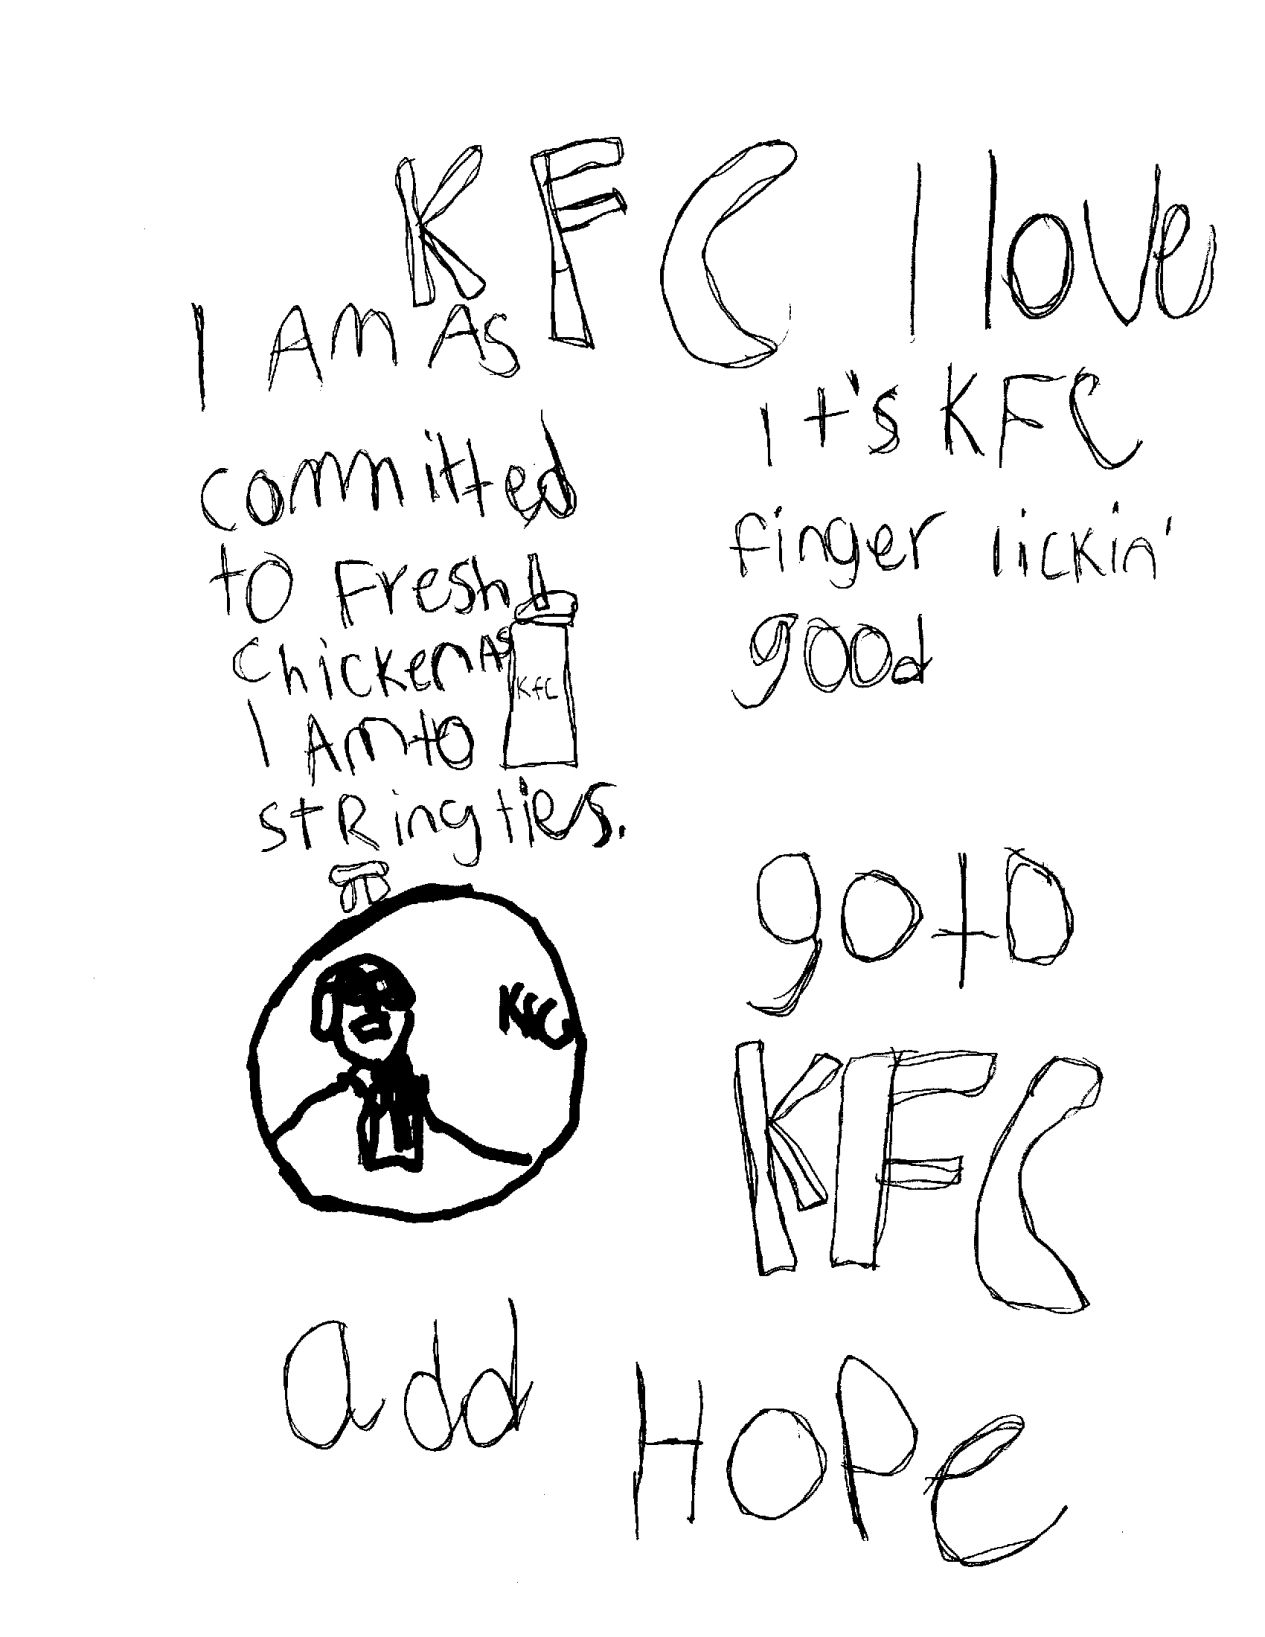 KFC I love
I Am As
committed
to Fresh
chicken As
I Am to
stRing ties.
it's KFC
finger lickin'
good
KfC
KFC
gotD
KFC
add
HOPe